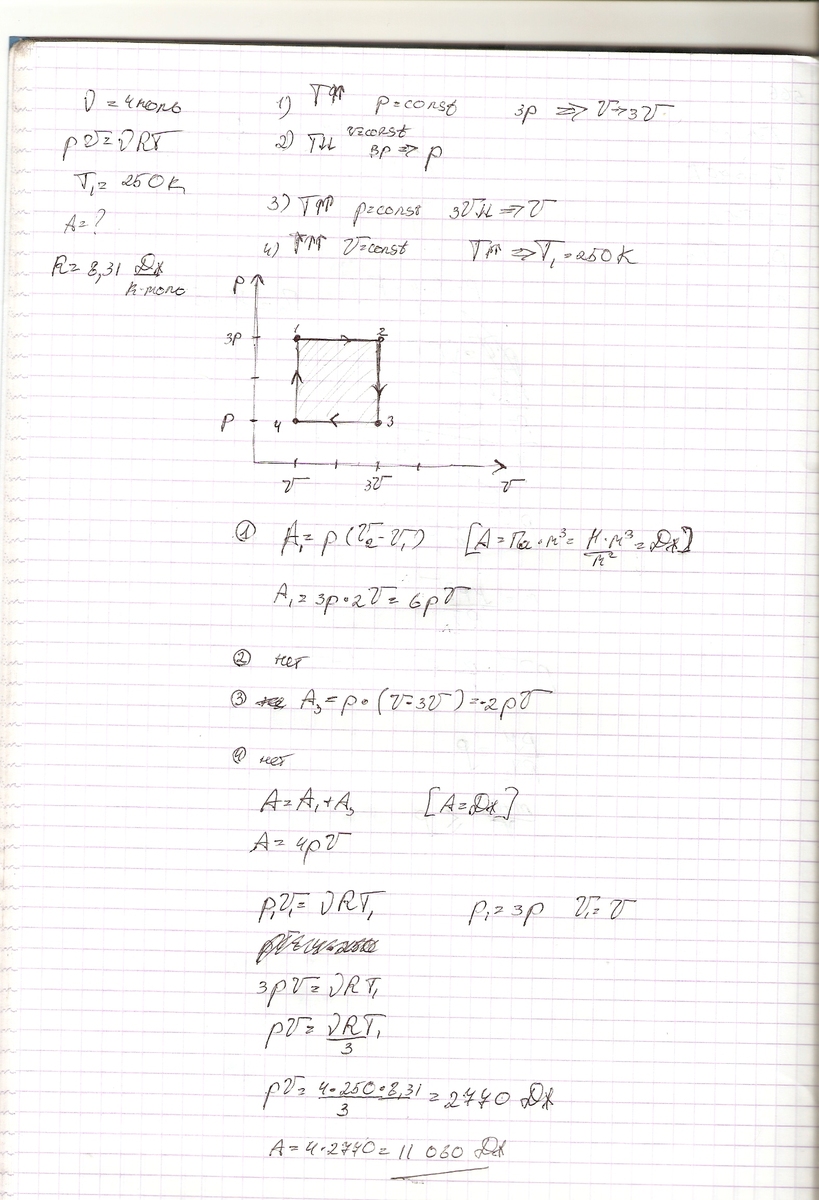 ν = 4 моль
pV = νRT
T₁ = 250 K
A = ?
R = 8,31 Дж
К·моль
1) T↑↑ p = const 3p ⇒ V → 3V
2) T↓↓ V = const 3p ⇒ p
3) T↑↑ p = const 3V↓↓ ⇒ V
4) T↑↑ V = const T↑↑ ⇒ T₁ = 250 K
p
3p 1 2
p 4 3
V 3V V
① A₁ = p (V₂ - V₁) [A = Па · м³ = Н · м³/м² = Дж]
A₁ = 3p · 2V = 6pV
② нет
③ A₃ = p · (V - 3V) = -2pV
④ нет
A = A₁ + A₃ [A = Дж]
A = 4pV
p₁V₁ = νRT₁ p₁ = 3p V₁ = V
3pV = νRT₁
pV = νRT₁/3
pV = 4·250·8,31/3 = 2770 Дж
A = 4·2770 = 11 060 Дж